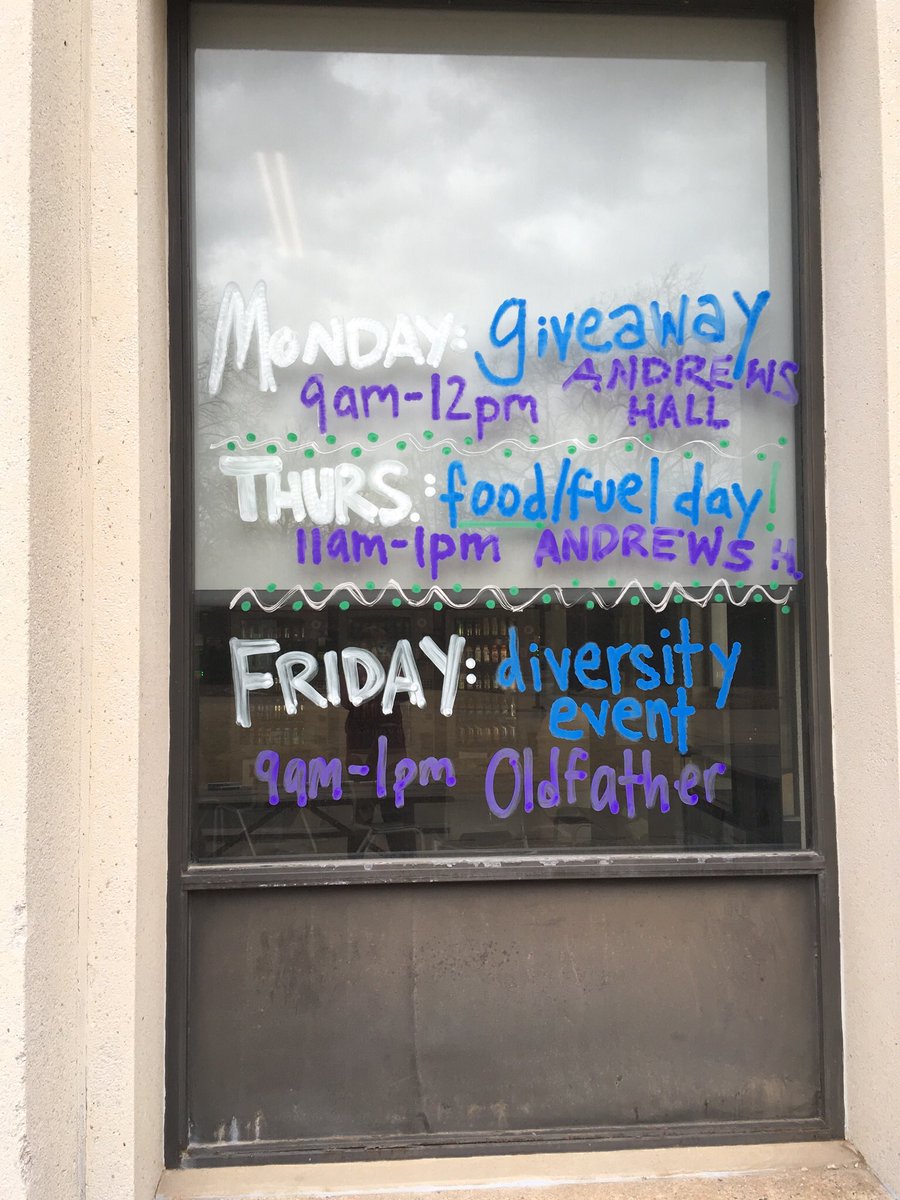 MONDAY: giveaway
9am-12pm ANDREWS HALL
THURS.: food/fuel day!
11am-1pm ANDREWS H.
FRIDAY: diversity event
9am-1pm Oldfather